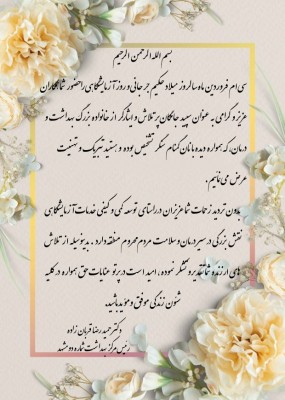 بسم الله الرحمن الرحیم
سی ام فروردین ماه سالروز میلاد حکیم جرجانی و روز آزمایشگاهی را حضور شما همکاران
عزیز و گرامی به عنوان سپید جامگان پر تلاش و ایثارگر از خانواده بزرگ بهداشت و
درمان، که همواره دیده بانان گمنام سنگر تشخیص بوده و هستید تبریک و تهنیت
عرض می نمایم.
بدون تردید زحمات شما عزیزان در راستای توسعه کمی و کیفی خدمات آزمایشگاهی
نقش بزرگی در سیر درمان و سلامت مردم محروم منطقه دارد. بدینوسیله از تلاش
های ارزنده شما تقدیر و تشکر نموده، امید است در پرتو عنایات حق همواره در کلیه
شئون زندگی موفق و موید باشید.
دکتر حمیدرضا قربان زاده
رئیس مرکز بهداشت شماره دو مشهد